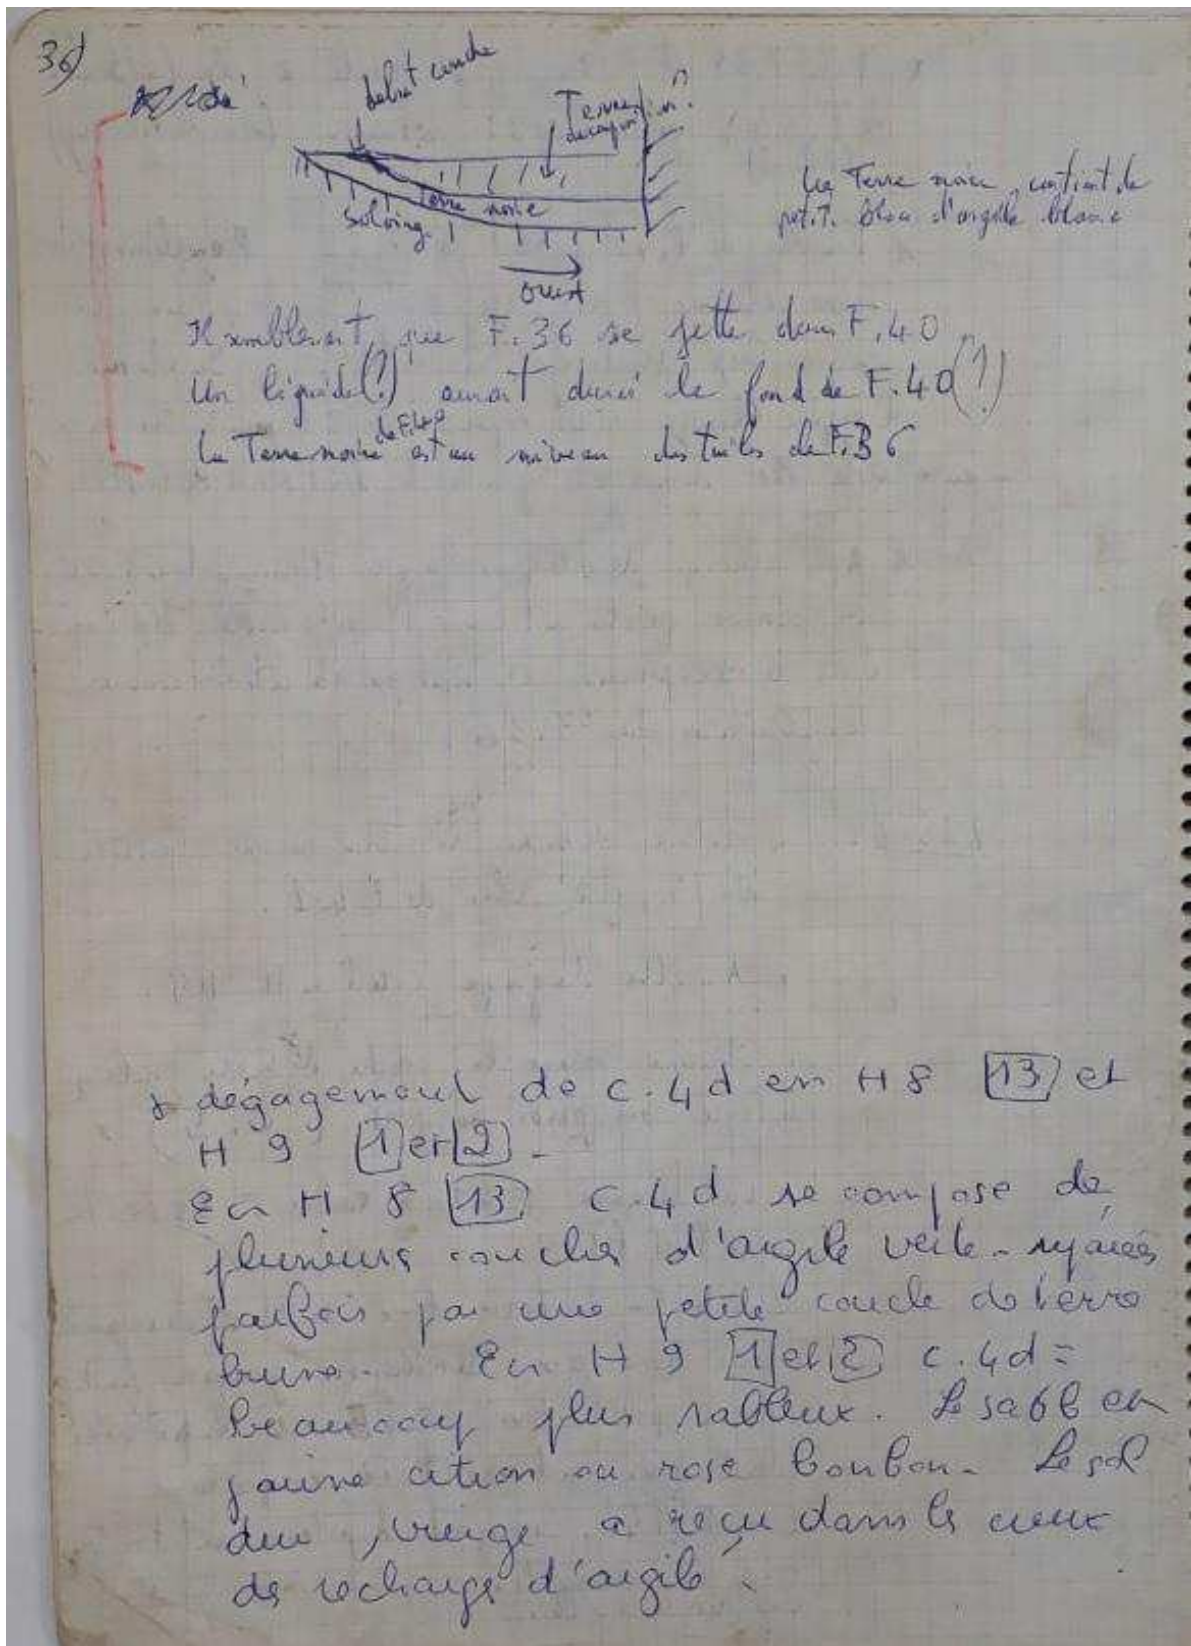 36)
début couche
Terre
Terre noire
Sol vierge
ouest
La Terre noire contient de
petit blocs d'argile blanc
Il semblerait que F.36 se jette dans F.40
Un liquide(?) aurait durci le fond de F.40(?)
La Terre noire de F.40 est au niveau des tuiles de F.36
dégagement de c.4d en H 8 13 et
H 9 1 et 2 -
En H 8 13 c.4d se compose de
plusieurs couches d'argile verte - séparées
parfois par une petite couche de terre
brune. En H 9 1 et 2 c.4d =
beaucoup plus sableux. Le sable est
jaune citron ou rose bonbon. Le sol
dur, vierge a reçu dans les creux
des recharges d'argile.